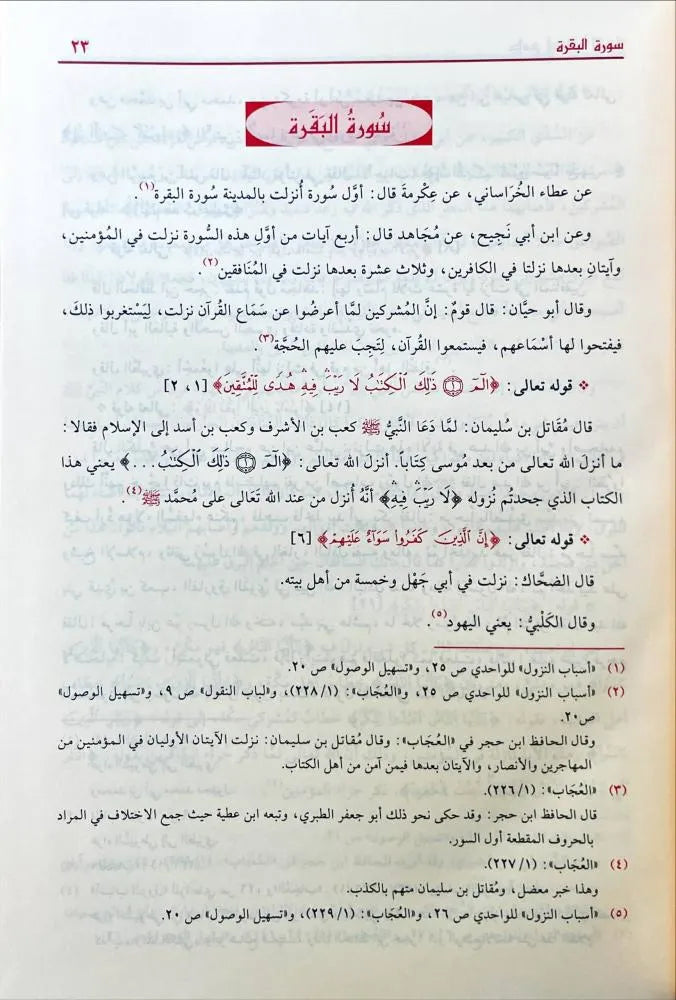 سورة البقرة ٢٣
سُورَةُ البَقَرة
عن عطاء الخُرَاساني، عن عِكْرمةَ قال: أوَّل سورة أُنزلت بالمدينة سُورة البقرة(١).
وعن ابن أبي نَجيح، عن مُجَاهد قال: أربع آيات من أوَّلِ هذه السُّورة نزلت في المُؤمنين،
وآيتانِ بعدها نزلتا في الكافرين، وثلاث عشرة بعدها نزلت في المُنَافقين(٢).
وقال أبو حيَّان: قال قومٌ: إنَّ المُشركين لمَّا أعرضُوا عن سَمَاع القُرآن نزلت، لِيَستغربوا ذلكَ،
فيفتحوا لها أسْمَاعهم، فيستمعوا القُرآن، لِتَجِبَ عليهم الحُجَّة(٣).
❖ قوله تعالى: ﴿الٓمٓ ۝١ ذَٰلِكَ ٱلْكِتَٰبُ لَا رَيْبَۛ فِيهِۛ هُدًى لِّلْمُتَّقِينَ﴾ [١، ٢]
قال مُقَاتل بن سُليمان: لمَّا دَعَا النَّبيُّ ﷺ كعب بن الأشرف وكعب بن أسد إلى الإسلام فقالا:
ما أنزلَ الله تعالى من بعد مُوسى كِتَاباً. أنزلَ الله تعالى: ﴿الٓمٓ ۝١ ذَٰلِكَ ٱلْكِتَٰبُ...﴾ يعني هذا
الكتاب الذي جحدتُم نُزوله ﴿لَا رَيْبَۛ فِيهِۛ﴾ أنَّهُ أُنزل من عند الله تعَالى على مُحمَّد ﷺ(٤).
❖ قوله تعالى: ﴿إِنَّ ٱلَّذِينَ كَفَرُوا۟ سَوَآءٌ عَلَيْهِمْ﴾ [٦]
قال الضحَّاك: نزلت في أبي جَهْل وخمسة من أهل بيته.
وقال الكَلْبيُّ: يعني اليهود(٥).
(١) «أسباب النزول» للواحدي ص ٢٥، و«تسهيل الوصول» ص ٢٠.
(٢) «أسباب النزول» للواحدي ص ٢٥، و«العُجَاب»: (١/ ٢٢٨)، و«لباب النقول» ص ٩، و«تسهيل الوصول»
ص٢٠.
وقال الحافظ ابن حجر في «العُجَاب»: وقال مُقاتل بن سليمان: نزلت الآيتان الأوليان في المؤمنين من
المهاجرين والأنصار، والآيتان بعدها فيمن آمن من أهل الكتاب.
(٣) «العُجَاب»: (١/ ٢٢٦).
قال الحافظ ابن حجر: وقد حكى نحو ذلك أبو جعفر الطبري، وتبعه ابن عطية حيث جمع الاختلاف في المراد
بالحروف المقطعة أول السور.
(٤) «العُجَاب»: (١/ ٢٢٧).
وهذا خبر معضل، ومُقاتل بن سليمان متهم بالكذب.
(٥) «أسباب النزول» للواحدي ص ٢٦، و«العُجَاب»: (١/ ٢٢٩)، و«تسهيل الوصول» ص ٢٠.